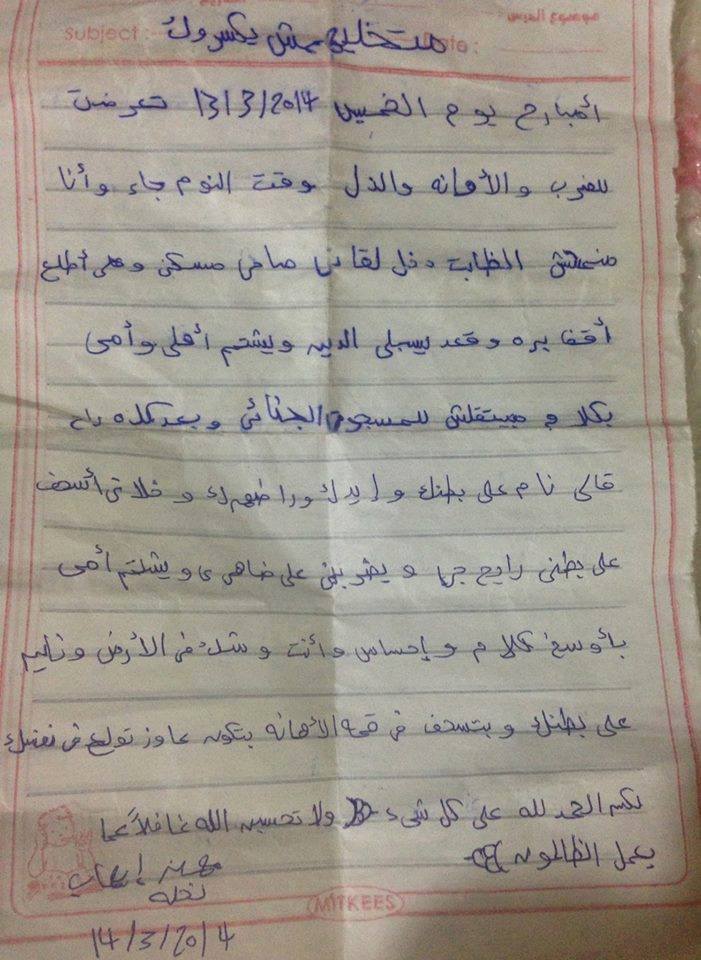 موضوع الدرس
subject :
Date :
متخليهمش يكسروك
أمبارح يوم الخميس 13/3/2014 تعرضت
للضرب والأهانه والذل وقت النوم جاء وأنا
منمتش الظابت دخل لقانى صاحى مسكنى وخلى أطلع
أقف بره وقعد يسبلى الدين ويشتم أهلى وأمى
بكلام ميتقلش للمسجون الجنائى وبعد كده راح
قالى نام على بطنك وإيدك ورا ضهرك وخلانى أسحف
على بطنى رايح جى ويضربنى على ضاهرى ويشتم أمى
بأوسخ كلام وإحساس وأنت وشك فى الأرض ونايم
على بطنك وبتسحف فى قمه الأهانه بتكون عاوز تولع فى نفسك
بس الحمد لله على كل شىء ولا تحسبن الله غافلاً عما
يعمل الظالمون
إيهاب
14/3/2014
MITKEES